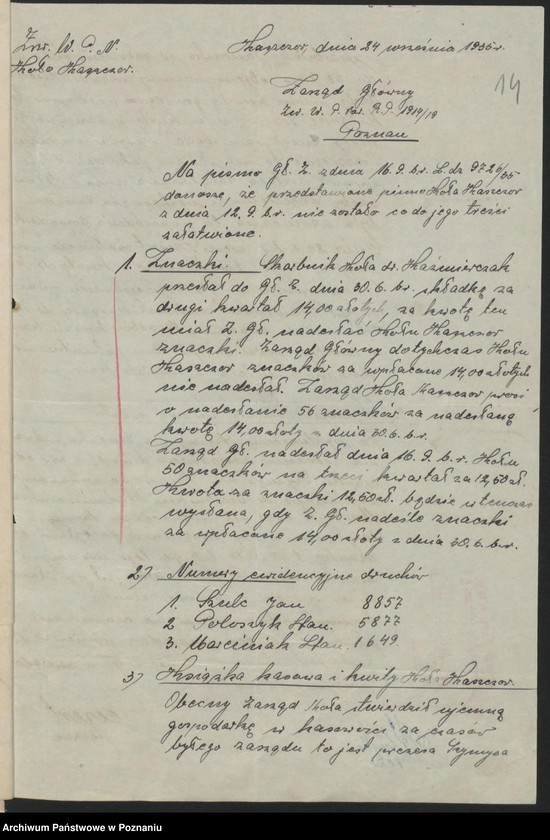 Zw. W. P. N.
Koło Kaszczor.
Kaszczor, dnia 24 września 1935 r.
14
Zarząd Główny
Zw. W. P. Pow. R. P. 1914/19
Poznań
Na pismo Gł. Z. z dnia 16. 9. b.r. L. dz 9726/35
donoszę, że przedstawione pismo Koła Kaszczor
z dnia 12. 9. b.r. nie zostało co do jego treści
załatwione.
1. Znaczki. Skarbnik Koła dr. Kaźmierczak
przesłał do Gł. Z. dnia 30. 6. b.r. składkę za
drugi kwartał 14,00 złotych, za kwotę ten
miał Z. Gł. nadesłać Kołu Kaszczor
znaczki. Zarząd Główny dotychczas Kołu
Kaszczor znaczków za wpłacone 14,00 złotych
nie nadesłał. Zarząd Koła Kaszczor prosi
o nadesłanie 56 znaczków za nadesłaną
kwotę 14,00 złoty z dnia 30. 6. b.r.
Zarząd Gł. nadesłał dnia 16. 9. b.r. Kołu
50 znaczków na trzeci kwartał za 12,50 zł.
Kwota za znaczki 12,50 zł. będzie wtenczas
wysłana, gdy Z. Gł. nadeśle znaczki
za wpłacone 14,00 złoty z dnia 30. 6. b.r.
2) Numery ewidencyjne druchów
1. Szulc Jan 8857
2 Stan. 5877
3. Marciniak Stan. 1649
3) Książka kasowa i kwity Koła Kaszczor.
Obecny Zarząd Koła stwierdził ujemną
gospodarkę w kasowości za czasów
byłego zarządu to jest prezesa Szymysa
Archiwum Państwowe w Poznaniu